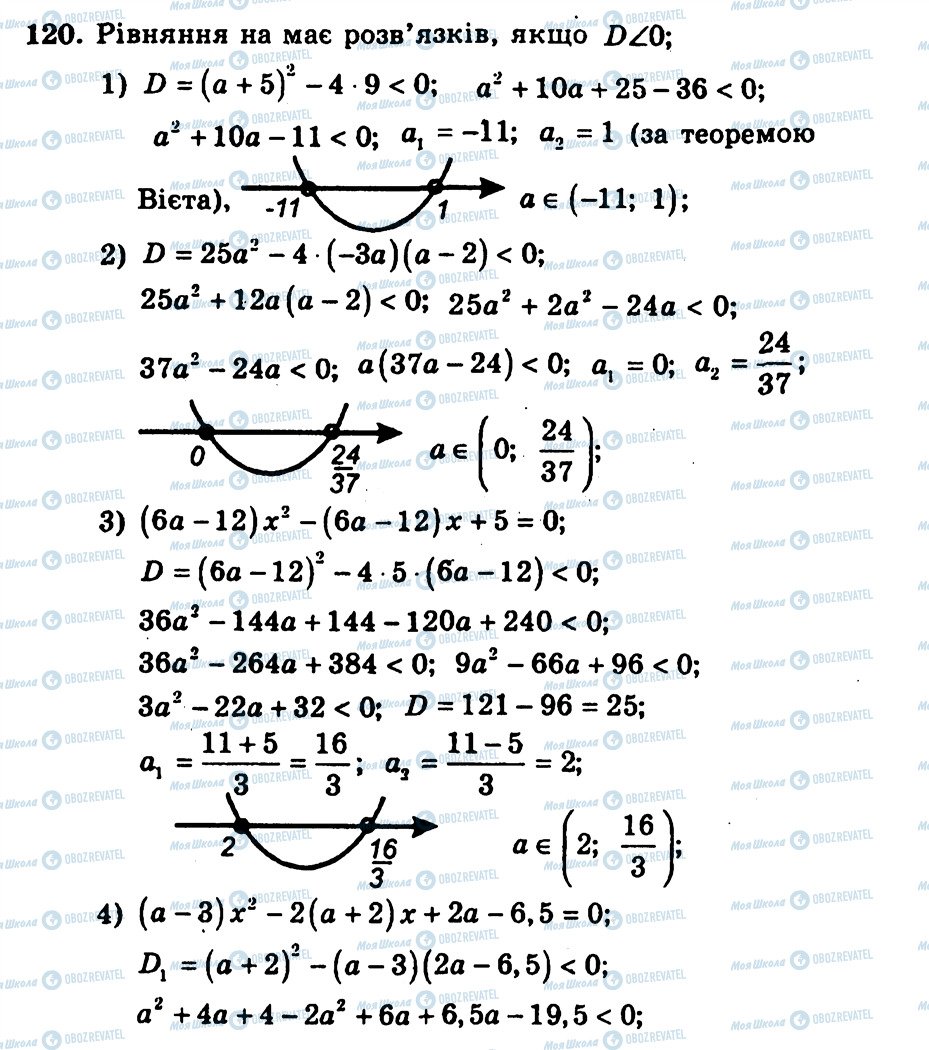 120. Рівняння на має розв'язків, якщо D∠0;
1) D = (a + 5)² − 4 · 9 < 0; a² + 10a + 25 − 36 < 0;
a² + 10a − 11 < 0; a₁ = −11; a₂ = 1 (за теоремою
Вієта), -11 1 a ∈ (−11; 1);
2) D = 25a² − 4 · (−3a)(a − 2) < 0;
25a² + 12a(a − 2) < 0; 25a² + 2a² − 24a < 0;
37a² − 24a < 0; a(37a − 24) < 0; a₁ = 0; a₂ = 24/37;
0 24/37 a ∈ (0; 24/37);
3) (6a − 12)x² − (6a − 12)x + 5 = 0;
D = (6a − 12)² − 4 · 5 · (6a − 12) < 0;
36a² − 144a + 144 − 120a + 240 < 0;
36a² − 264a + 384 < 0; 9a² − 66a + 96 < 0;
3a² − 22a + 32 < 0; D = 121 − 96 = 25;
a₁ = (11 + 5)/3 = 16/3; a₂ = (11 − 5)/3 = 2;
2 16/3 a ∈ (2; 16/3);
4) (a − 3)x² − 2(a + 2)x + 2a − 6,5 = 0;
D₁ = (a + 2)² − (a − 3)(2a − 6,5) < 0;
a² + 4a + 4 − 2a² + 6a + 6,5a − 19,5 < 0;